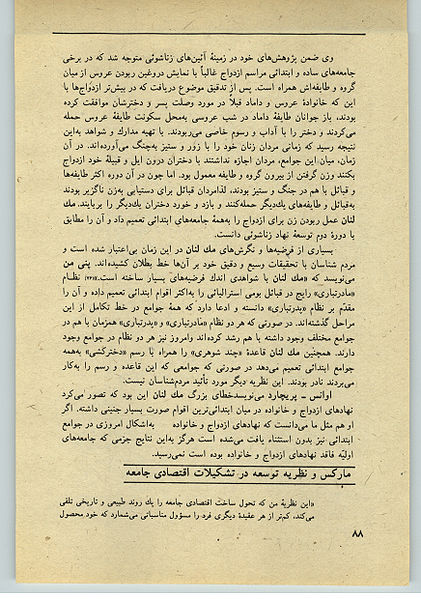 وی ضمن پژوهش‌های خود در زمینهٔ آئین‌های زناشوئی متوجه شد که در برخی
جامعه‌های ساده و ابتدائی مراسم ازدواج غالباً با نمایش دروغین ربودن عروس از میان
گروه و طایفه‌اش همراه است. پس از تدقیق موضوع دریافت که در بیش‌تر ازدواج‌ها با
این که خانوادهٔ عروس و داماد قبلاً در مورد وصلت پسر و دخترشان موافقت کرده
بودند، باز جوانان طایفهٔ داماد در شب عروسی به‌محل سکونت طایفهٔ عروس حمله
می‌کردند و دختر را با آداب و رسوم خاصی می‌ربودند. با تهیه مدارك و شواهد به‌این
نتیجه رسید که زمانی مردان زنان خود را با زور و ستیز به‌چنگ می‌آورده‌اند. در آن
زمان، میان این جوامع، مردان اجازه نداشتند با دختران درون ایل و قبیلهٔ خود ازدواج
بکنند وزن گرفتن از بیرون گروه و طایفه معمول بود. اما چون در آن دوره اکثر طایفه‌ها
و قبائل با هم در جنگ و ستیز بودند، لذامردان قبائل برای دستیابی به‌زن ناگزیر بودند
به‌قبائل و طایفه‌های یك‌دیگر حمله‌کنند و بازد و خورد دختران یك‌دیگر را بربایند. مك
لنان عمل ربودن زن برای ازدواج را به‌همهٔ جامعه‌های ابتدائی تعمیم داد و آن را مطابق
با دورهٔ دوم توسعهٔ نهاد زناشوئی دانست.
بسیاری از فرضیه‌ها و نگرش‌های مك لنان در این زمان بی‌اعتبار شده است و
مردم شناسان با تحقیقات وسیع و دقیق خود بر آن‌ها خط بطلان کشیده‌اند. پنی من
می‌نویسد که «مك لنان با شواهدی اندك فرضیه‌های بسیار ساخته است.» نظـام
«مادرتباری» رایج در قبائل بومی استرالیائی را به‌اکثر اقوام ابتدائی تعمیم داده و آن را
مقدم بر نظام «پدرتباری» دانسته و ادعا دارد که همهٔ جوامع در خط تکامل از این
مراحل گذشته‌اند. در صورتی که هر دو نظام «مادرتباری» و «پدرتباری» همزمان با هم در
جوامع مختلف وجود داشته با هم رشد کرده‌اند وامروز نیز هر دو نظام در جوامع وجود
دارند. همچنین مك لنان قاعدهٔ «چند شوهری» را همراه با رسم «دخترکشی» به‌همه
جوامع ابتدائی تعمیم می‌دهد در صورتی که جوامعی که این قاعده و رسم را به‌کار
می‌بردند نادر بودند. این نظریه دیگر مورد تأئید مردم‌شناسان نیست.
اوانس ـ پریچارد می‌نویسدخطای بزرگ مك لنان این بود که تصور می‌کرد
نهادهای ازدواج و خانواده در میان ابتدائی‌ترین اقوام صورت بسیار جنینی داشته. اگر
او هم مثل ما می‌دانست که نهادهای ازدواج و خانواده به‌اشکال امروزی در جوامع
ابتدائی نیز بدون استثناء یافت می‌شده است هرگز به‌این نتایج جزمی که جامعه‌های
اولیّه فاقد نهادهای ازدواج و خانواده بوده است نمی‌رسید.
مارکس و نظریه توسعه در تشکیلات اقتصادی جامعه
«این نظریهٔ من که تحول ساخت اقتصادی جامعه را یك روند طبیعی و تاریخی تلقی
می‌کند، کم‌تر از هر عقیدهٔ دیگری فرد را مسؤول مناسباتی می‌شمارد که خود محصول
۸۸